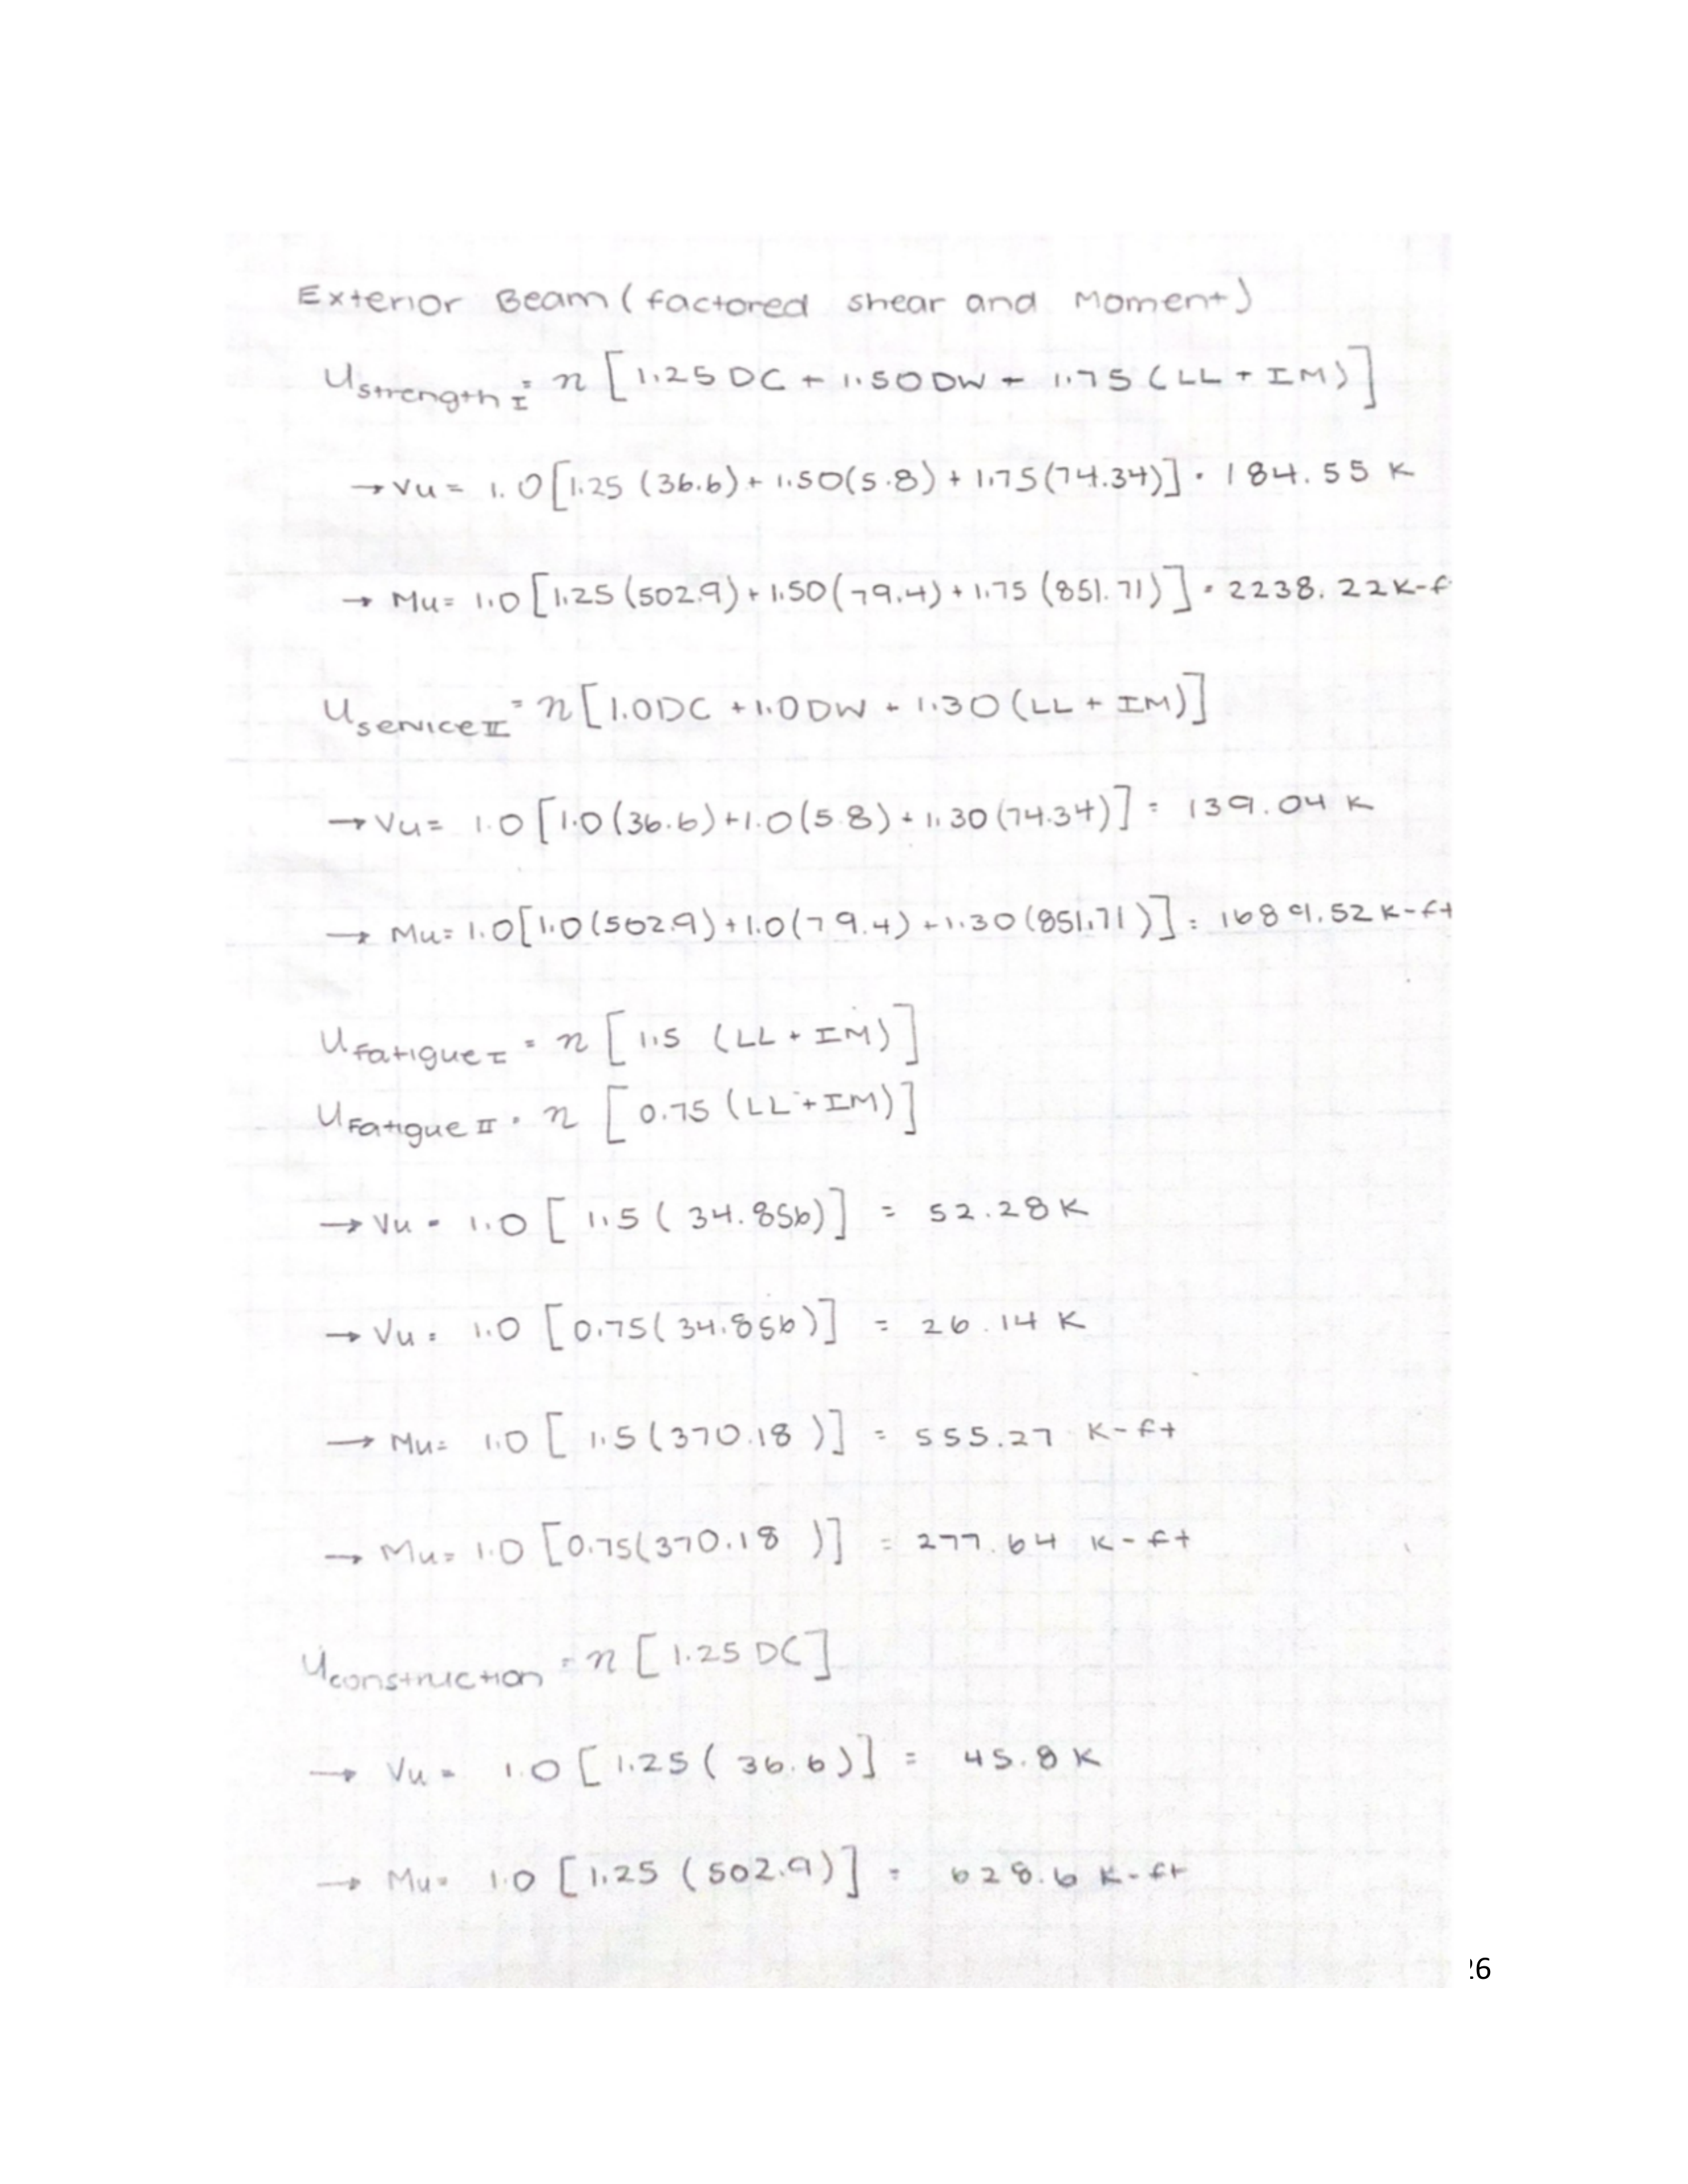 Exterior Beam (factored shear and Moment)
U strength I = n [1.25 DC + 1.50 DW + 1.75 (LL + IM)]
→ Vu = 1.0 [1.25 (36.6) + 1.50 (5.8) + 1.75 (74.34)] = 184.55 K
→ Mu = 1.0 [1.25 (502.9) + 1.50 (79.4) + 1.75 (851.71)] = 2238.22 K-f
U service II = n [1.0 DC + 1.0 DW + 1.30 (LL + IM)]
→ Vu = 1.0 [1.0 (36.6) + 1.0 (5.8) + 1.30 (74.34)] = 139.04 K
→ Mu = 1.0 [1.0 (502.9) + 1.0 (79.4) + 1.30 (851.71)] = 1689.52 K-ft
U Fatigue I = n [1.5 (LL + IM)]
U Fatigue II = n [0.75 (LL + IM)]
→ Vu = 1.0 [1.5 (34.856)] = 52.28 K
→ Vu = 1.0 [0.75 (34.856)] = 26.14 K
→ Mu = 1.0 [1.5 (370.18)] = 555.27 K-ft
→ Mu = 1.0 [0.75 (370.18)] = 277.64 K-ft
U construction = n [1.25 DC]
→ Vu = 1.0 [1.25 (36.6)] = 45.8 K
→ Mu = 1.0 [1.25 (502.9)] = 628.6 K-ft
26